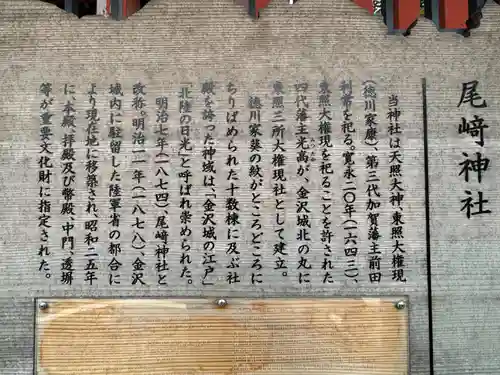 尾﨑神社
当神社は天照大神、東照大権現
（徳川家康）、第三代加賀藩主前田
利常を祀る。寛永二〇年（一六四三）、
東照大権現を祀ることを許された
四代藩主光高が、金沢城北の丸に
東照三所大権現社として建立。
徳川家葵の紋がところどころに
ちりばめられた十数棟に及ぶ社
殿を誇った神域は、金沢城の江戸
「北陸の日光」と呼ばれ崇められた。
明治七年（一八七四）、尾崎神社と
改称。明治一一年（一八七八）、金沢
城内に駐留した陸軍省の都合に
より現在地に移築され、昭和二五年
に、本殿、拝殿及び幣殿、中門、透塀
等が重要文化財に指定された。